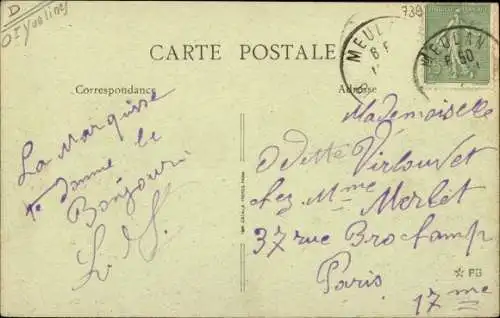 D
Yvelines
739
CARTE POSTALE
MEULAN
MEULAN
Correspondance
Adresse
La Marquise
te donne le
Bonjour
Mademoiselle
Odette Virlouvet
chez Mme Merlet
37 rue Brochamp
Paris
17me
IMP. CATALA FRERES, PARIS
PB